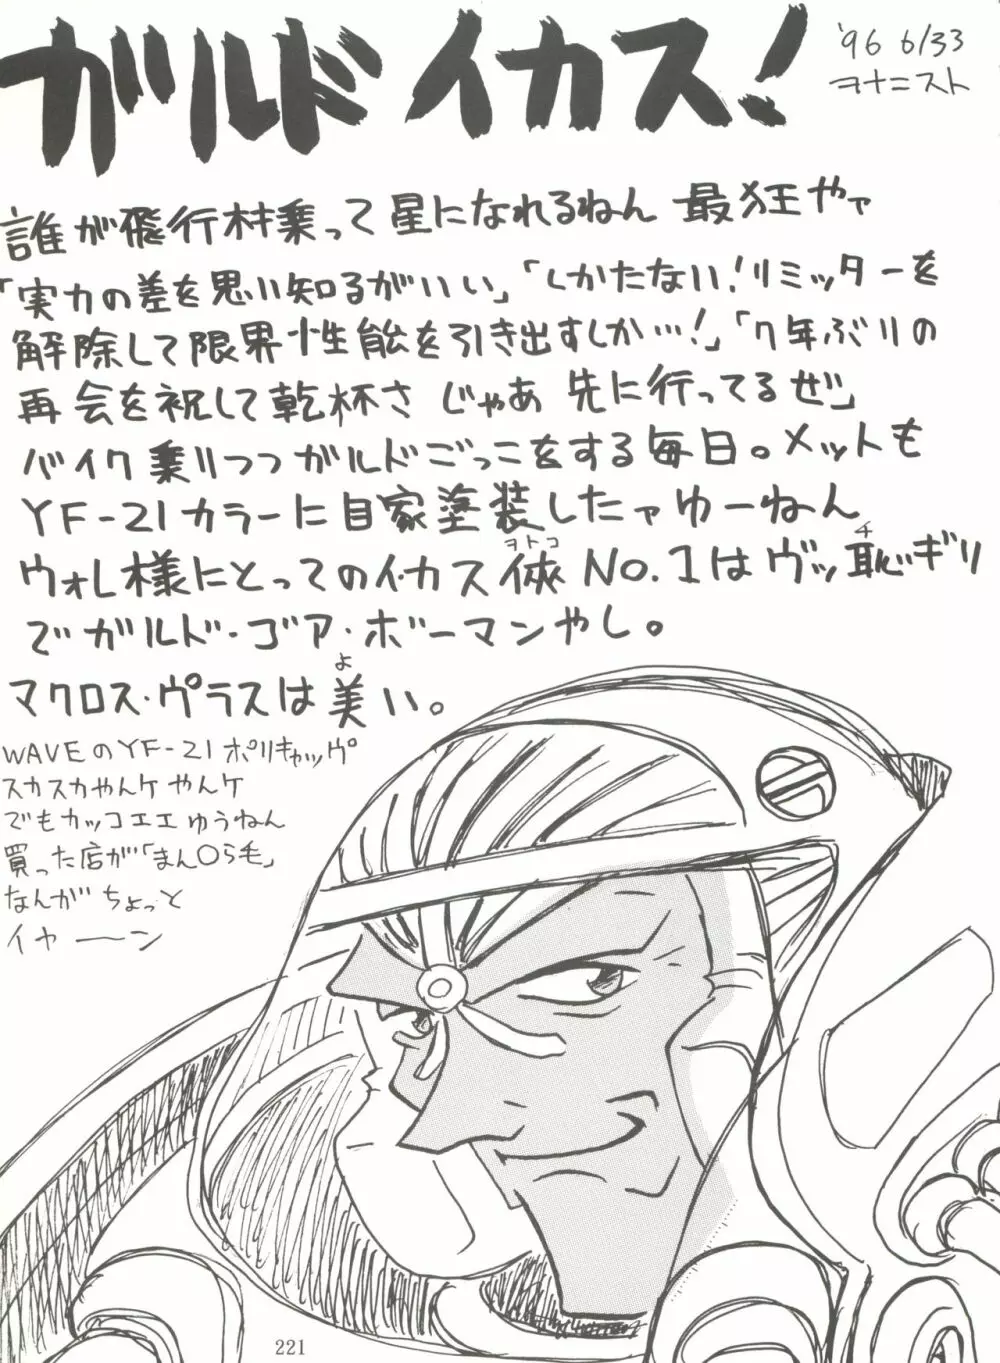 ガルドイカス!
'96 6/33
ヲナニスト
誰が飛行材乗って星になれるねん 最狂やァ
「実力の差を思い知るがいい」「しかたない!リミッターを
解除して限界性能を引き出すしか…!」「7年ぶりの
再会を祝して乾杯さ じゃあ 先に行ってるぜ」
バイク乗りつつガルドごっこをする毎日。メットも
YF-21カラーに自家塗装したァゆーねん
ヲトコ チ
ウォレ様にとってのイカス俠No.1はヴッ恥ギリ
でガルド・ゴア・ボーマンやし。
よ
マクロス・プラスは美い。
WAVEのYF-21ポリキャップ
スカスカやんケやんケ
でもカッコエエゆうねん
買った店が「まん○ら毛」
なんがちょっと
イヤーン
221